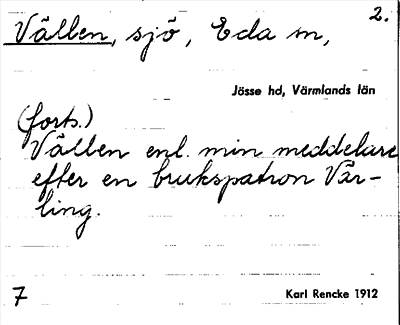 2.
Välben, sjö, Eda sn,
Jösse hd, Värmlands län
(forts.)
Välben enl. min meddelare
efter en brukspatron Vär-
ling.
7
Karl Rencke 1912